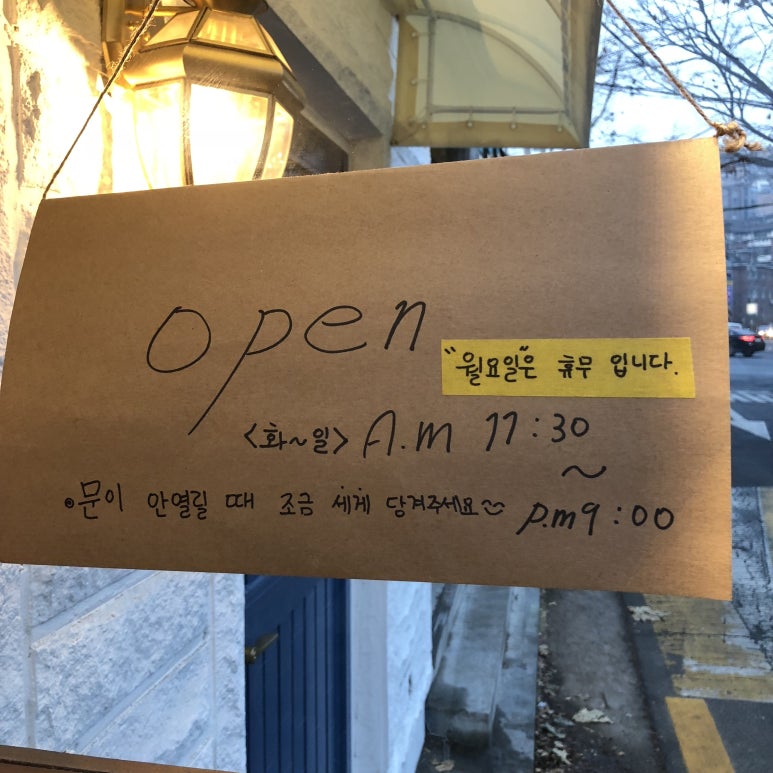 open
"월요일"은 휴무 입니다.
<화~일> A.m 11:30
~
문이 안열릴 때 조금 세게 당겨주세요 p.m 9:00